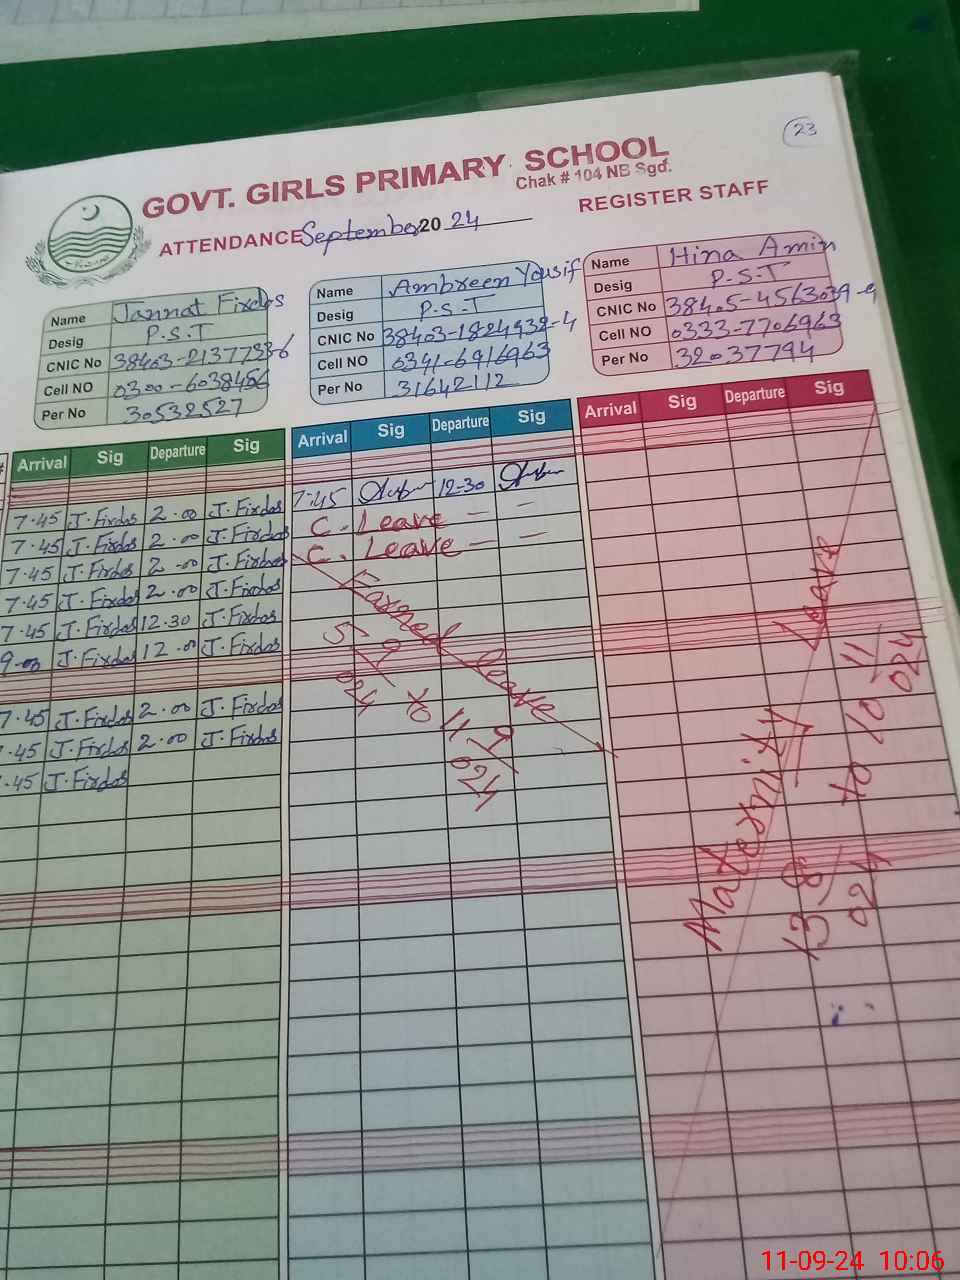 23
GOVT. GIRLS PRIMARY SCHOOL
Chak # 104 NB Sgd.
ATTENDANCE September 2024 REGISTER STAFF
Name Jannat Firdos
Desig P.S.T
CNIC No
Cell NO 0300-6038456
Per No 30532527
Name Ambreen Yousif
Desig P.S.T
CNIC No 38403-1824938-4
Cell NO 0341-6916963
Per No 31642112
Name Hina Amin
Desig P.S.T
CNIC No 38405-4563039-9
Cell NO 0333-7706963
Per No 32037794
Arrival Sig Departure Sig
7.45 J.Firdos 2.00 J.Firdos
7.45 J.Firdos 2.00 J.Firdos
7.45 J.Firdos 2.00 J.Firdos
7.45 J.Firdos 2.00 J.Firdos
7.45 J.Firdos 12.30 J.Firdos
J.Firdos 12.00 J.Firdos
7.45 J.Firdos 2.00 J.Firdos
.45 J.Firdos 2.00 J.Firdos
.45 J.Firdos
Arrival Sig Departure Sig
7:45 12-30
C. Leave - -
C. Leave - -
Earned leave
5/9/024 to 11/9/024
Arrival Sig Departure Sig
Maternity Leave
13/8/024 to 10/11/024
11-09-24 10:06